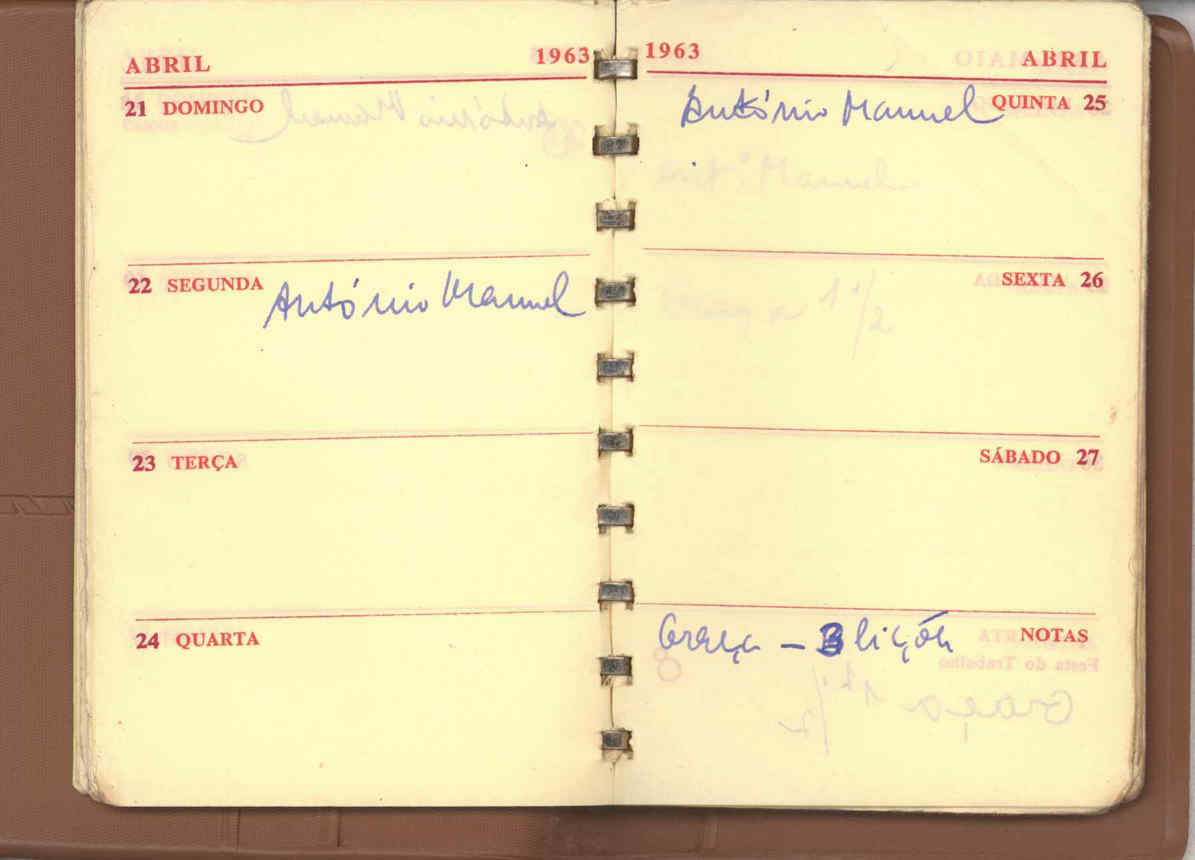 ABRIL 1963
21 DOMINGO
22 SEGUNDA António Manuel
23 TERÇA
24 QUARTA
1963 ABRIL
António Manuel QUINTA 25
SEXTA 26
SÁBADO 27
Graça - 3 lições NOTAS